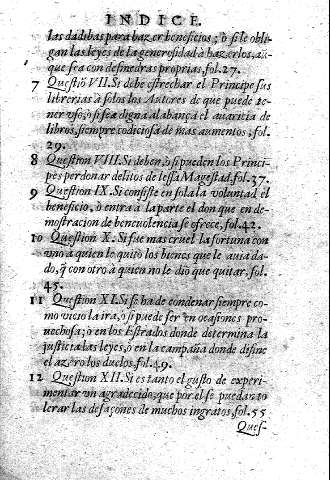 INDICE.
las dadibas para hazer beneficios; ò si le obli-
gan las leyes de la generosidad à hazerlos, aũ-
que sea con desmedras proprias, fol. 27.
7 Questiō VII. Si debe estrechar el Principe sus
librerias à solos los Autores de que puede te-
ner vso, ò si sea digna alabança el auaricia de
libros, siempre codiciosa de mas aumentos, fol.
29.
8 Question VIII. Si deben, ò si pueden los Princi-
pes perdonar delitos de lessa Magestad, fol. 37.
9 Question IX. Si consiste en sola la voluntad el
beneficio, ò entra à la parte el don que en de-
mostracion de beneuolencia se ofrece, fol. 42.
10 Question X. Si fue mas cruel la fortuna con
vno à quien le quitò los bienes que le auia da-
do, q̃ con otro à quien no le diò que quitar, fol.
45.
11 Question XI. Si se ha de condenar siempre co-
mo vicio la ira, ò si puede ser en ocasiones pro-
uechosa; ò en los Estrados donde determina la
justicia las leyes, ò en la campaña donde difine
el azero los duelos, fol. 49.
12 Question XII. Si es tanto el gusto de experi-
mentar vn agradecido, que por el se puedan to-
lerar las desaçones de muchos ingratos, fol. 55
Ques-